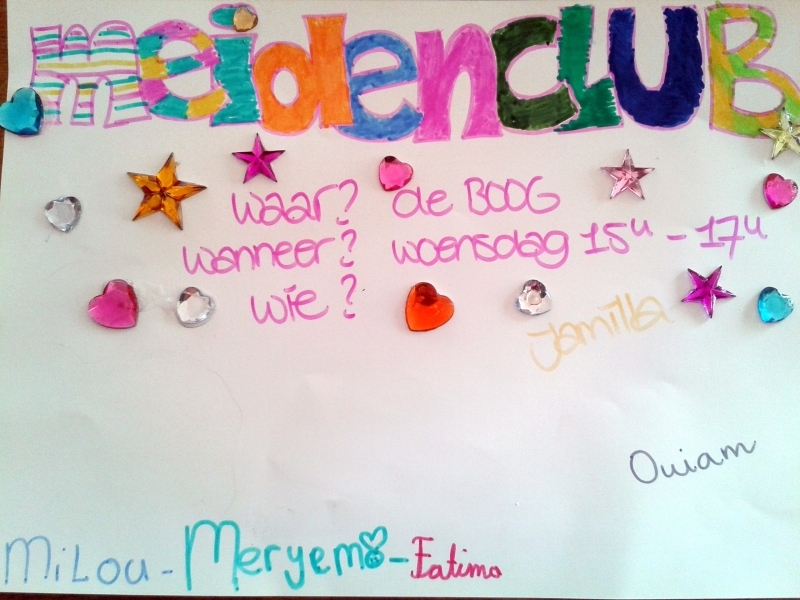 meidenclub
waar? de BOOG
wanneer? woensdag 15u - 17u
wie?
Jamilla
Ouiam
MiLou - Meryem - Fatima